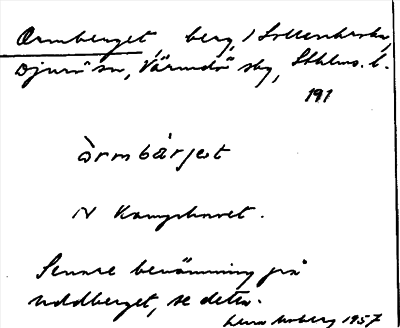 Ormberget, berg, / Sollenkroka,
Djurö sn, Värmdö sky, Sthlms. l.
191
òrmbärjet
N Kanholmet.
Senare benämning på
uddberget, se detta.
Lena Moberg 1957